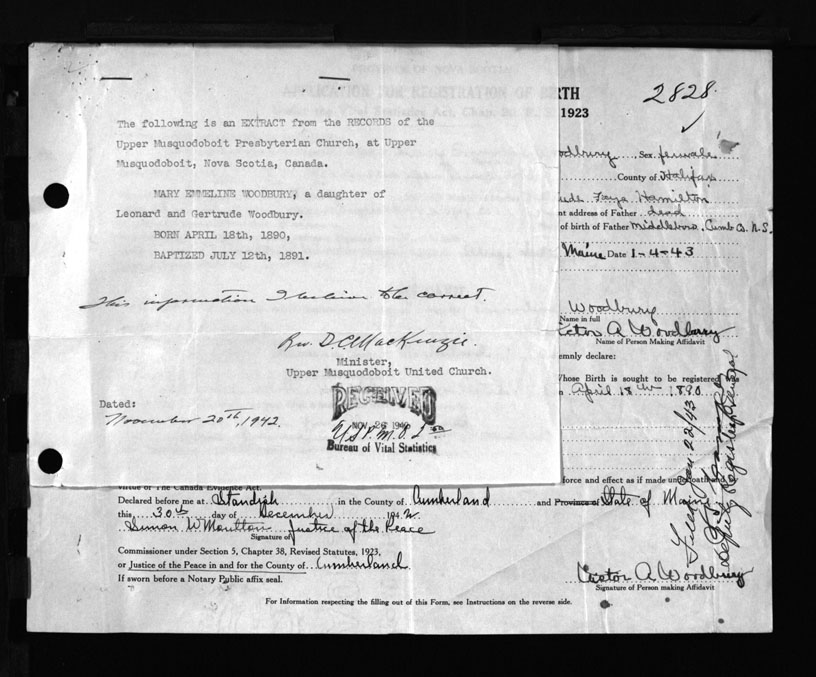 The following is an EXTRACT from the RECORDS of the
Upper Musquodoboit Presbyterian Church, at Upper
Musquodoboit, Nova Scotia, Canada.
MARY EMMELINE WOODBURY, a daughter of
Leonard and Gertrude Woodbury.
BORN APRIL 18th, 1890,
BAPTIZED JULY 12th, 1891.
This information I believe to be correct.
Rev. D.C. MacKenzie.
Minister,
Upper Musquodoboit United Church.
Dated:
November 20th, 1942.
RECEIVED
NOV 26
Bureau of Vital Statistics
APPLICATION FOR REGISTRATION OF BIRTH
1923
2828
oodbury Sex female
County of Halifax
ude Faye Hamilton
nt address of Father dead
of birth of Father Middleboro, Cumb Co. N.S.
Maine Date 1-4-43
Woodbury
Name in full
ictor A Woodbury
Name of Person Making Affidavit
emnly declare:
hose Birth is sought to be registered, was
n April 18th 1890
force and effect as if made under oath and
virtue of The Canada Evidence Act.
Declared before me at Standish in the County of Cumberland and Province of State of Maine
this 30th day of December 1942
Simon W Moulton Justice of the Peace
Signature of
Commissioner under Section 5, Chapter 38, Revised Statutes, 1923,
or Justice of the Peace in and for the County of Cumberland
If sworn before a Notary Public affix seal.
Victor A Woodbury
Signature of Person making Affidavit
Filed Jan. 22/43
Deputy Registrar General
For Information respecting the filling out of this Form, see Instructions on the reverse side.